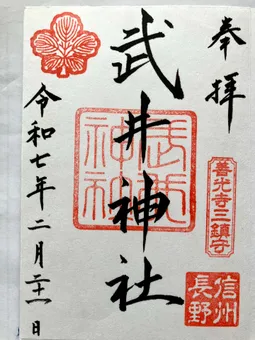 奉拝
善光寺三鎮守
信州
長野
武井神社
武井
神社
令和七年二月二十一日